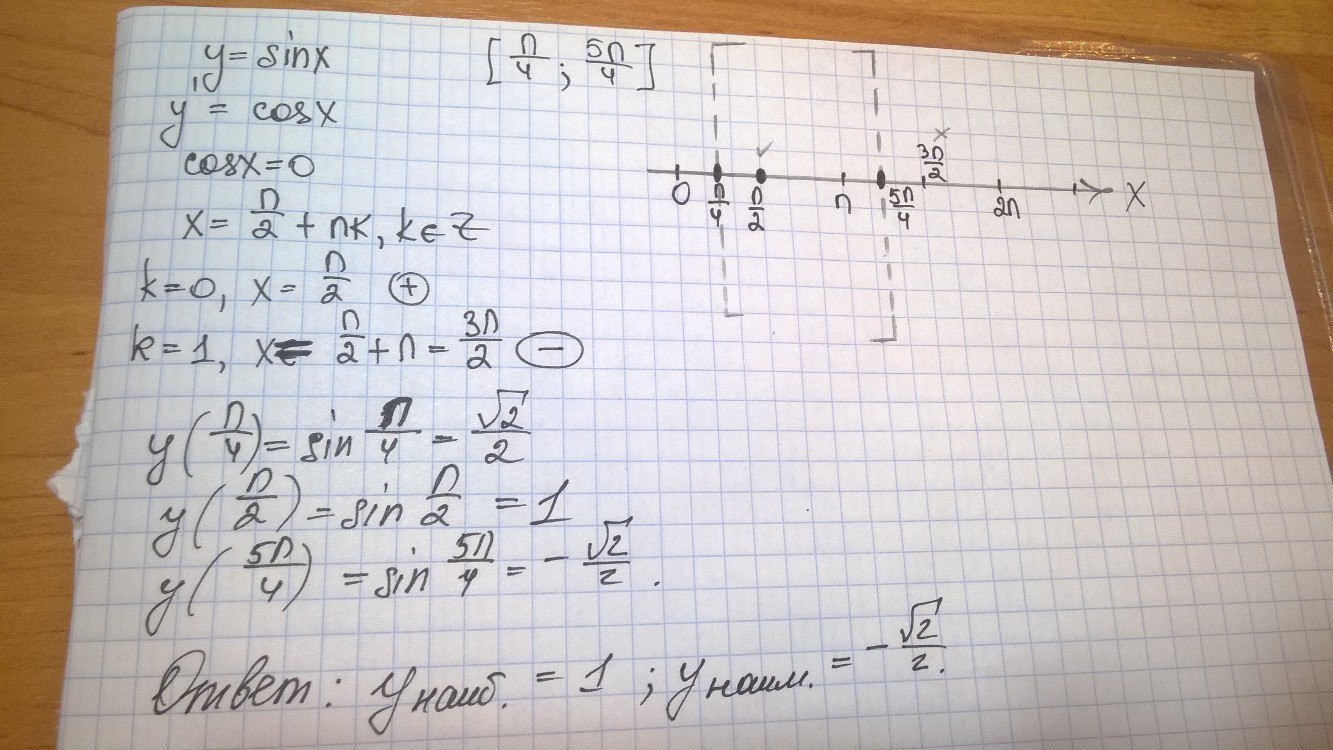 y = sinx [π/4; 5π/4]
y' = cosx
cosx=0
x = π/2 + πk, k∈Z
k=0, x= π/2 (+)
k=1, x= π/2 + π = 3π/2 (−)
0 π/4 π/2 π 5π/4 3π/2 2π x
y(π/4) = sin π/4 = √2/2
y(π/2) = sin π/2 = 1
y(5π/4) = sin 5π/4 = -√2/2.
Ответ: y наиб. = 1; y наим. = -√2/2.